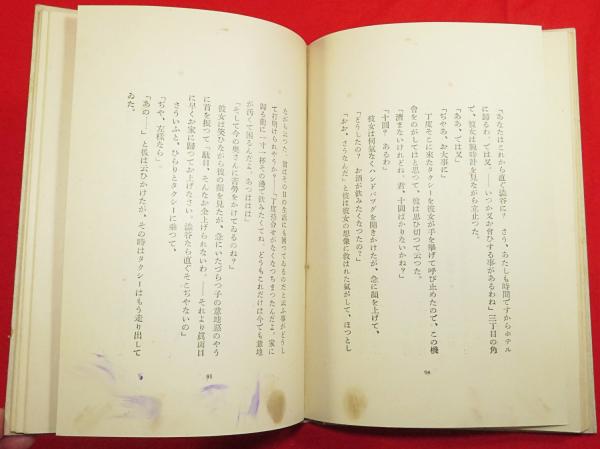 「あなたはこれから直ぐ澁谷に？　さう、あたしも時間ですからホテル
に歸るわ、では又――いつか又お會ひする事があるわね」三丁目の角
で、彼女は腕時計を見ながら立止つた。
「ああ、では又」
「ぢやあ、お大事に」
丁度そこに來たタクシーを彼女が手を擧げて呼び止めたので、この機
會をのがしてはと思つて、彼は思ひ切つて云つた。
「濟まないけれどね、君、十圓ばかりないかね？」
「十圓？　あるわ」
彼女は何氣なくハンドバッグを開きかけたが、急に顔を上げて、
「どうしたの？　お酒が飲みたくなつたの？」
「おお、さうなんだ」と彼は彼女の想像に救はれた氣がして、ほつとし
98
ながら云つた。實はその日の生活にも困つてゐるのだと云ふ事がどうし
て打明けられやうか？――「丁度持合せがなくなつちまつたんだよ。家に
歸る前に一寸一杯その邊で飲みたくてね。どうもこれだけは今でも意地
が汚くて困るんだよ、あつははは」
「そして今の奥さんに苦勞をかけてゐるのね？」
彼女は笑ひながら彼の顔を見たが、急にいたづらつ子の意地惡のやう
に首を振つて「駄目、そんなお金上げられないわ。――それより眞面目
に早くお家に歸つてお上げなさい。澁谷なら直ぐそこぢやないの」
さういふと、ひらりとタクシーに乗つて、
「ぢや、左樣なら」
「あの――」と彼は云ひかけたが、その時はタクシーはもう走り出して
ゐた。